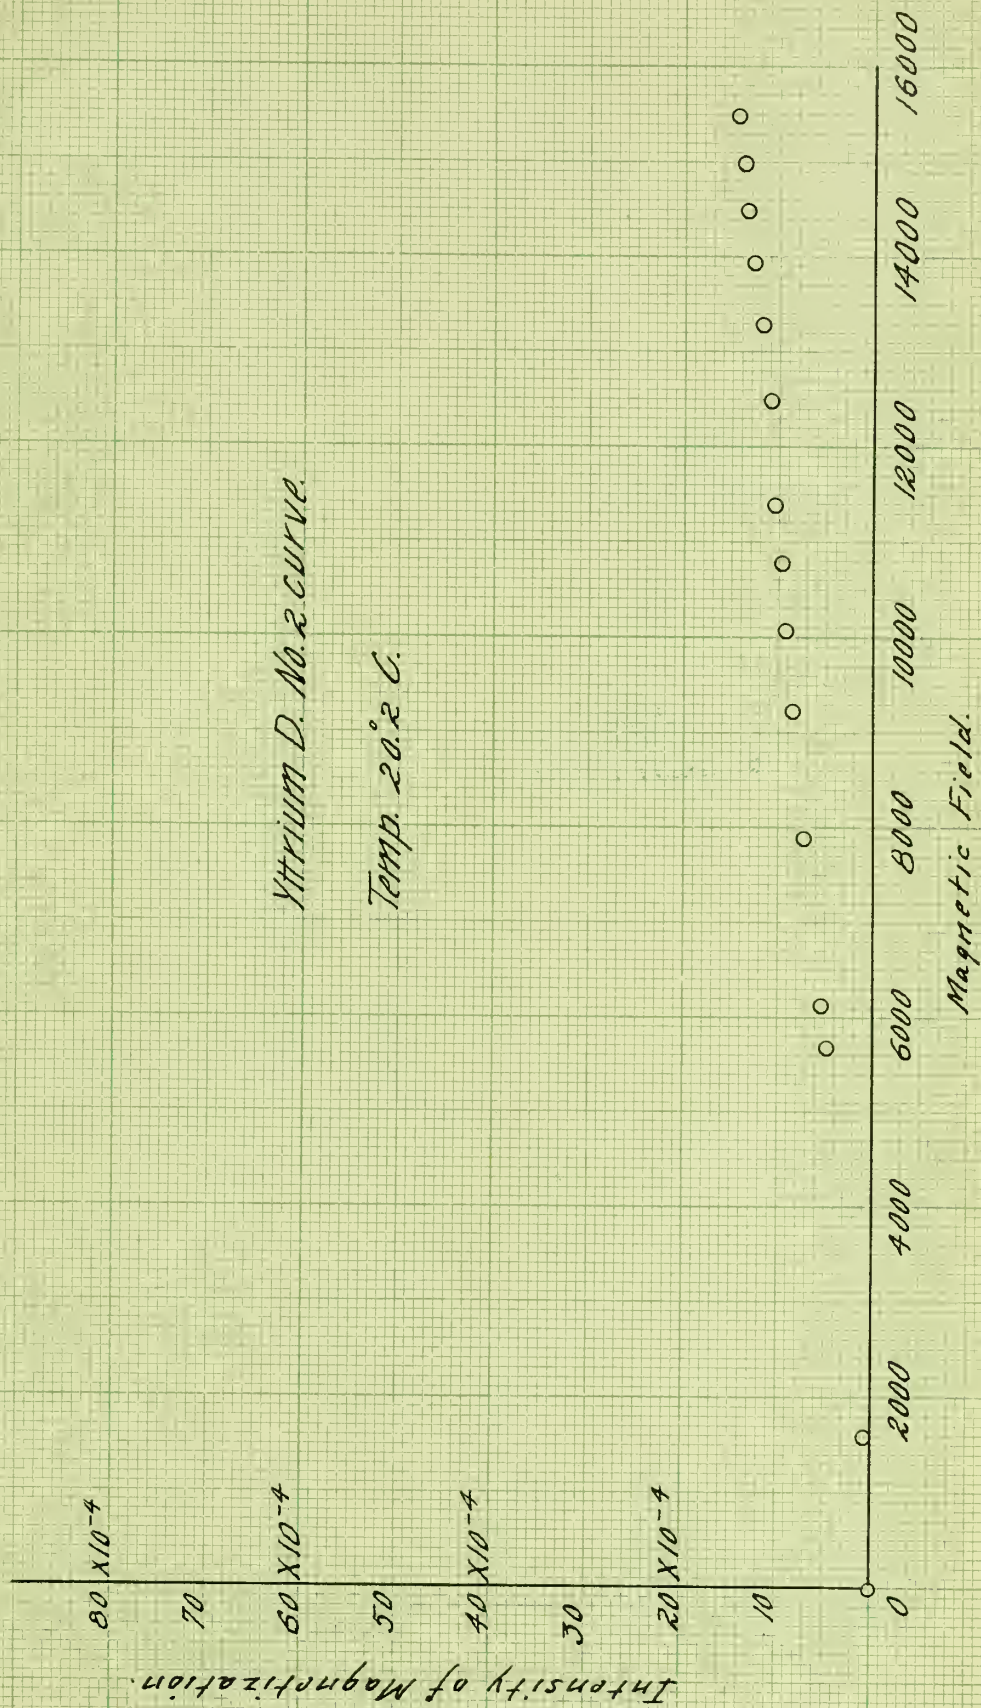 Yttrium D. No. 2 curve.
Temp. 20.°2 C.
Intensity of Magnetization.
80 X10⁻⁴
70
60 X10⁻⁴
50
40 X10⁻⁴
30
20 X10⁻⁴
10
0
2000
4000
6000
8000
10000
12000
14000
16000
Magnetic Field.